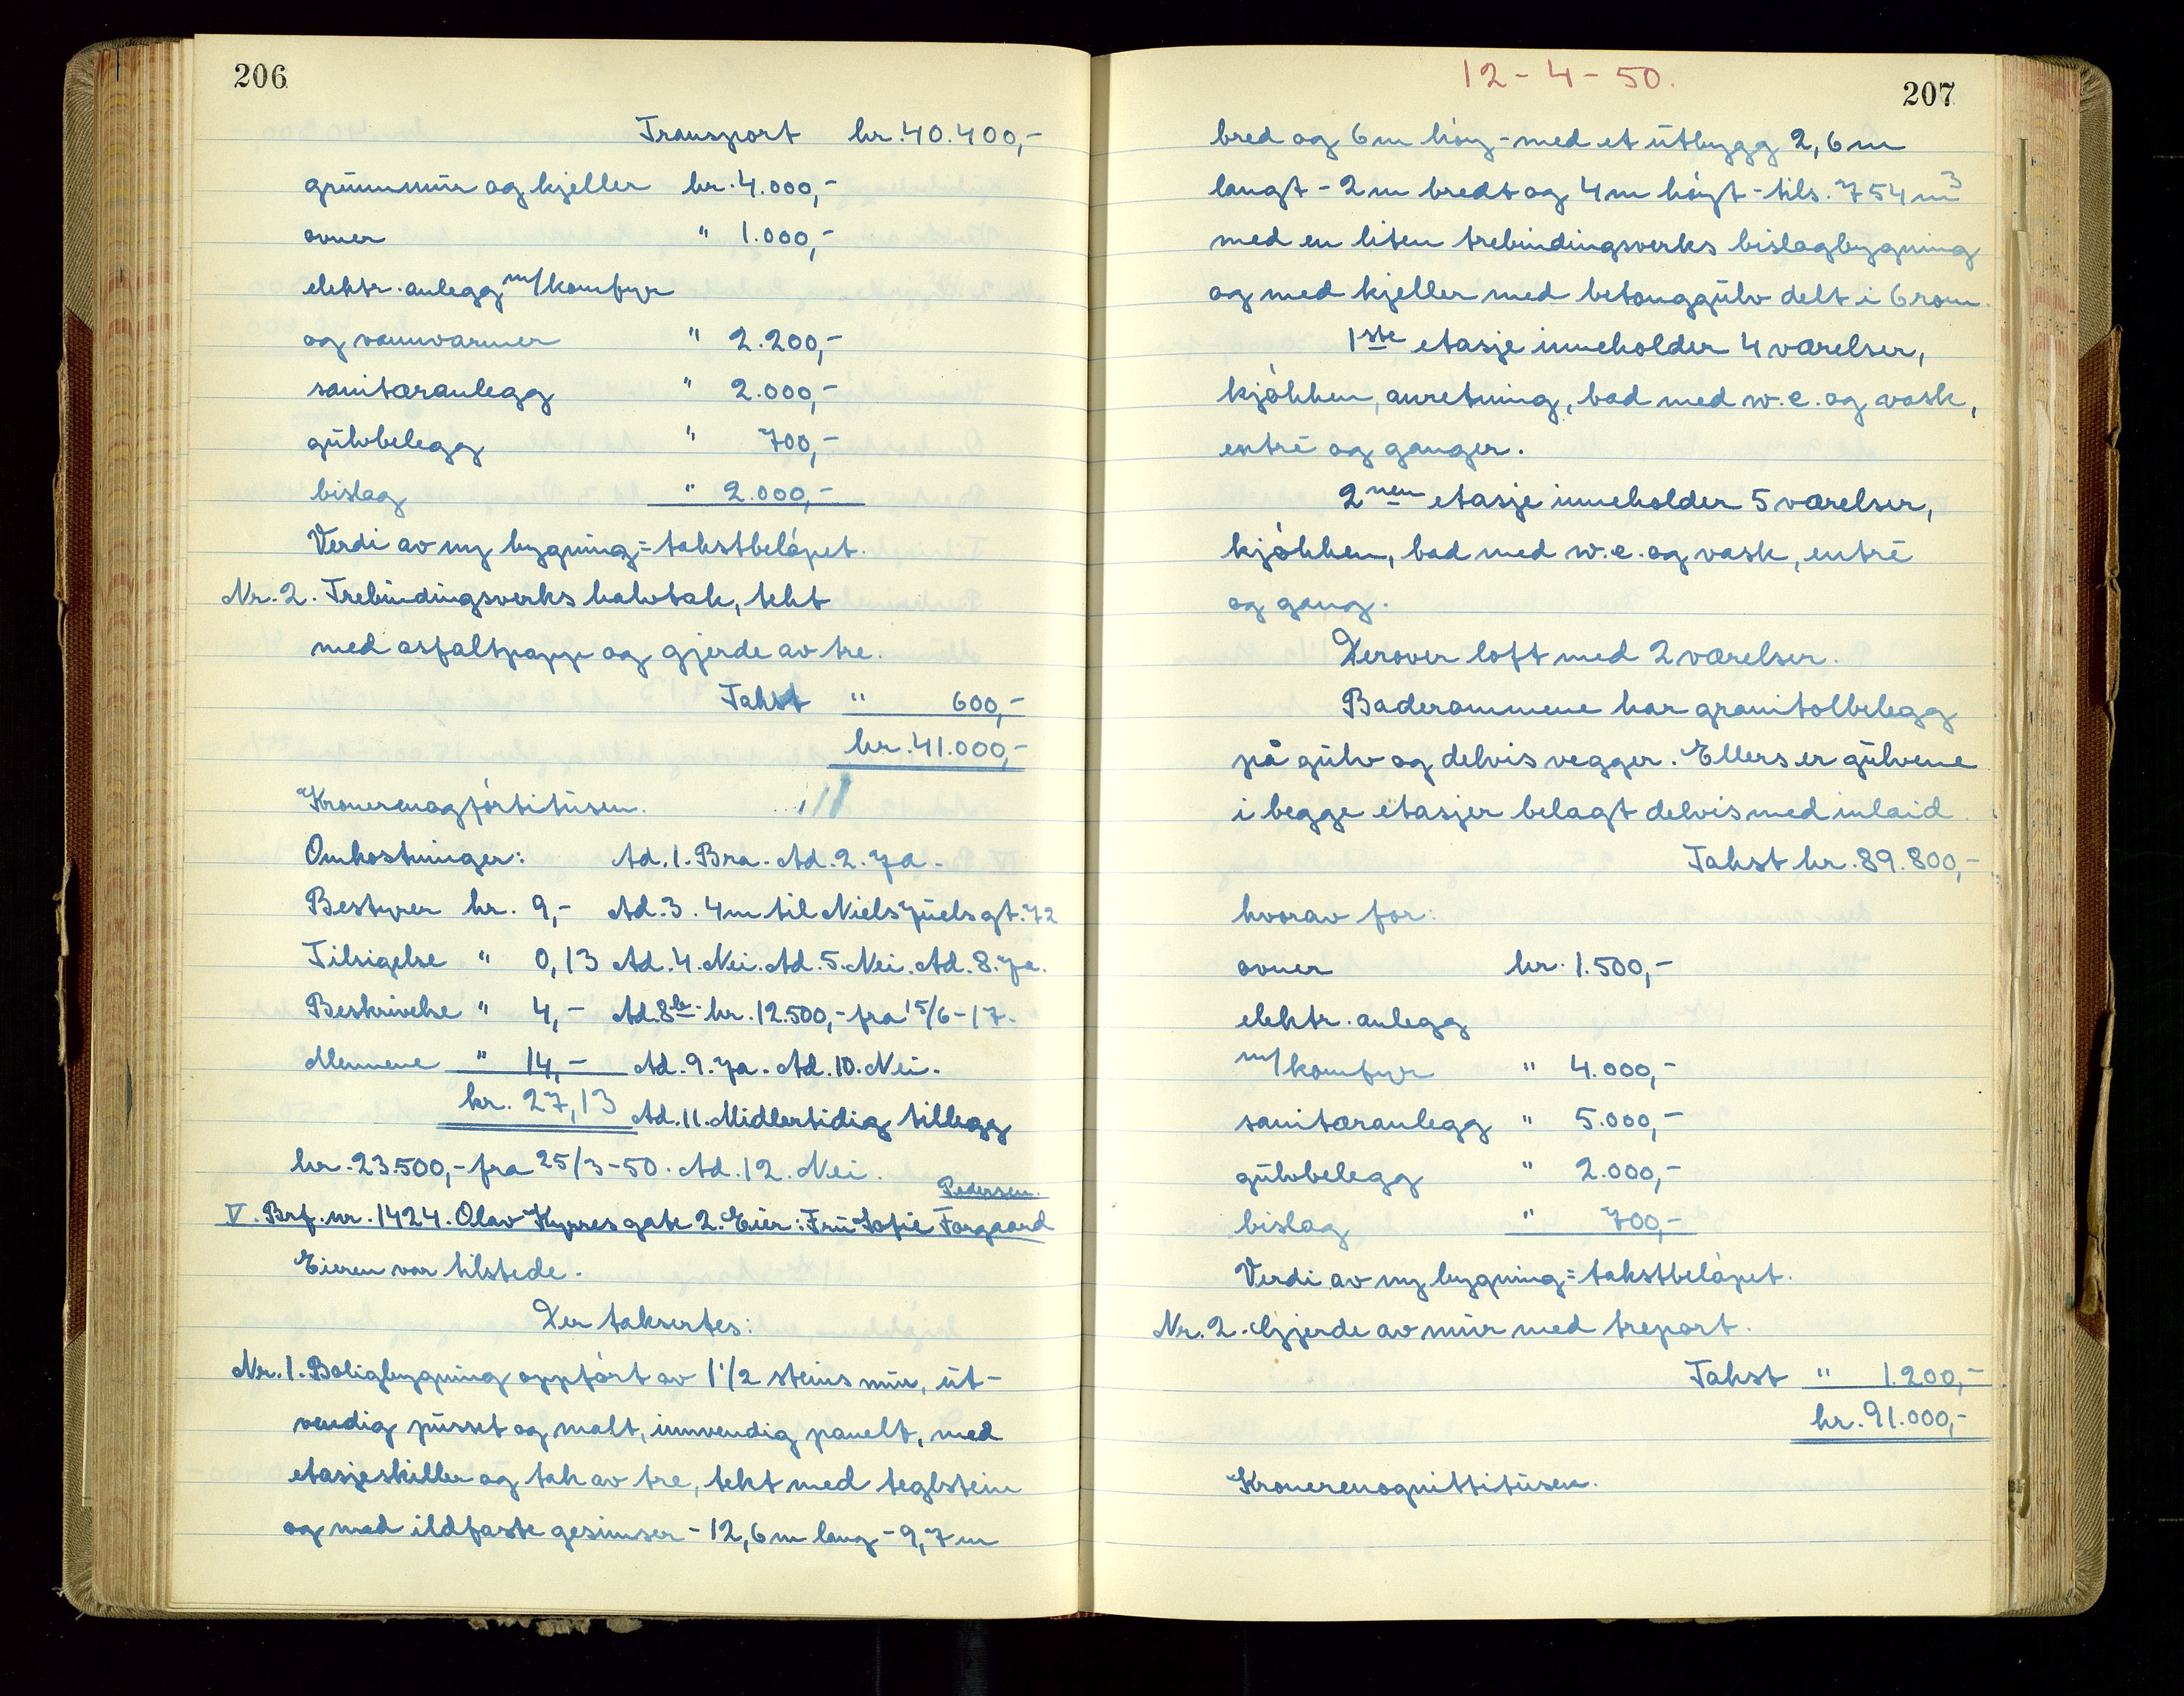 206
Transport kr. 40.400,-
grunnmur og kjeller kr. 4.000,-
ovner " 1.000,-
elektr. anlegg m/komfyr
og vannvarmer " 2.200,-
sanitæranlegg " 2.000,-
gulvbelegg " 700,-
bislag " 2.000,-
Verdi av ny bygning = takstbeløpet.
Nr. 2. Trebindingsverks halvtak, tekt
med asfaltpapp og gjerde av tre.
Takst " 600,-
kr. 41.000,-
Kronerenogførtitusen.
Omkostninger: Ad. 1. Bra. Ad. 2. Ja.
Bestyrer kr. 9,- Ad. 3. 4m til Niels Juelsgt. 72
Tilsigelse " 0,13 Ad. 4. Nei. Ad. 5. Nei. Ad. 8. Ja.
Beskrivelse " 4,- Ad. 8b. kr. 12.500,- fra 15/6-17.
Mennene " 14,- Ad. 9. Ja. Ad. 10. Nei.
kr. 27,13 Ad. 11. Midlertidig tillegg
kr. 23.500,- fra 25/3-50. Ad. 12. Nei.
Pedersen.
V. Brf. nr. 1424. Olav Kyrres gate 2. Eier: Fru Sofie Forgaard
Eieren var tilstede.
Der taksertes:
Nr. 1. Boligbygning oppført av 1 1/2 steins mur, ut-
vendig pusset og malt, innvendig panelt, med
etasjeskiller og tak av tre, tekt med teglstein
og med ildfaste gesimser - 12,6 m lang - 9,7 m
12-4-50.
207
bred og 6 m høy - med et utbygg 2,6 m
langt - 2 m bredt og 4 m høyt - tils. 754 m³
med en liten trebindingsverks bislagbygning
og med kjeller med betonggulv delt i 6 rom.
1ste etasje inneholder 4 værelser,
kjøkken, anretning, bad med w.c. og vask,
entré og ganger.
2nen etasje inneholder 5 værelser,
kjøkken, bad med w.c. og vask, entré
og gang.
Derover loft med 2 værelser.
Baderommene har granitolbelegg
på gulv og delvis vegger. Ellers er gulvene
i begge etasjer belagt delvis med inlaid.
Takst kr. 89.800,-
hvorav for:
ovner kr. 1.500,-
elektr. anlegg
m/komfyr " 4.000,-
sanitæranlegg " 5.000,-
gulvbelegg " 2.000,-
bislag " 700,-
Verdi av ny bygning = takstbeløpet.
Nr. 2. Gjerde av mur med treport.
Takst " 1.200,-
kr. 91.000,-
Kronerenognittitusen.